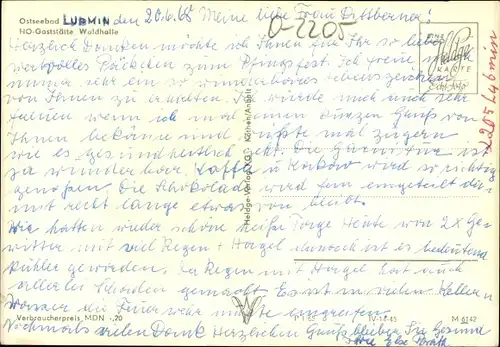 Ostseebad LUBMIN den 20.6.68 Meine liebe Frau Dittberner!
HO-Gaststätte Waldhalle
O-2205
Herzlich Danken möchte ich Ihnen für Ihr so liebes
wertvolles Päckchen zum Pfingstfest. Ich freue mich
immer sehr ein so wunderbares Lebenszeichen
von Ihnen zu erhalten. Ich würde mich auch sehr
freuen wenn ich mal einen kurzen Gruß von
Ihnen bekäme und wüßte mal
wie es gesundheitlich geht. Die Garnitur ist
ja wunderbar. Kaffee u Kakao wird so richtig
genoßen. Die Schokolade wird fein eingeteilt da-
mit recht lange etwas von bleibt.
Wir hatten wieder schön heiße Tage Heute von 2 x Ge-
witter mit viel Regen + Hagel danach ist es bedeutend
kühler geworden. Da Regen mit Hagel hat auch
allerlei Schaden gemacht Es ist in vielen Kellern
Wasser die Feuerwehr mußte eingreifen
Nochmals vielen Dank Herzlichen Gruß bleiben Sie Gesund
Ihre Else
EINE
KARTE
Heldge-Verlag KG Köthen/Anhalt
2205/Lubmin
Verbraucherpreis MDN -,20
P 1/65
IV-14-45
M 6142